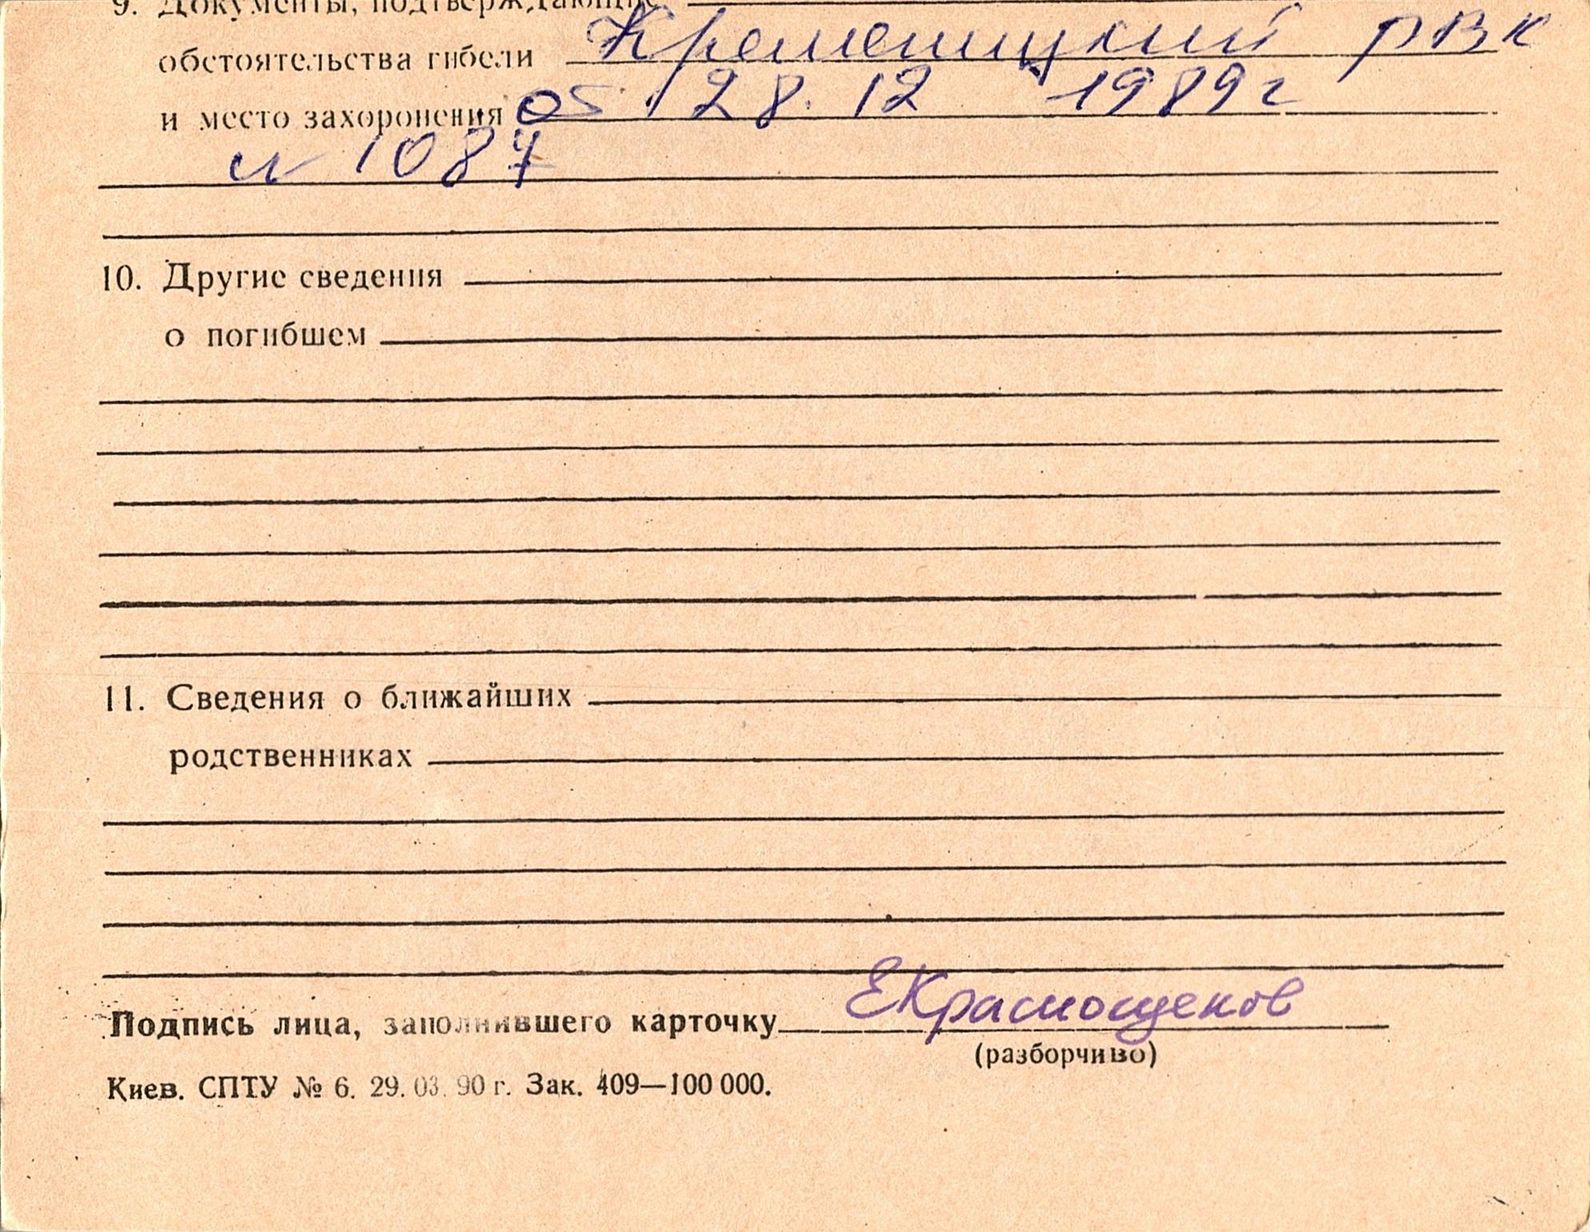 9. Документы, подтверждающие
обстоятельства гибели Кременецкий РВК
и место захоронения от 28.12 1989г
№ 1087
10. Другие сведения
о погибшем
11. Сведения о ближайших
родственниках
Подпись лица, заполнившего карточку ЕКраснощеков
(разборчиво)
Киев. СПТУ № 6. 29.03.90 г. Зак. 409—100 000.